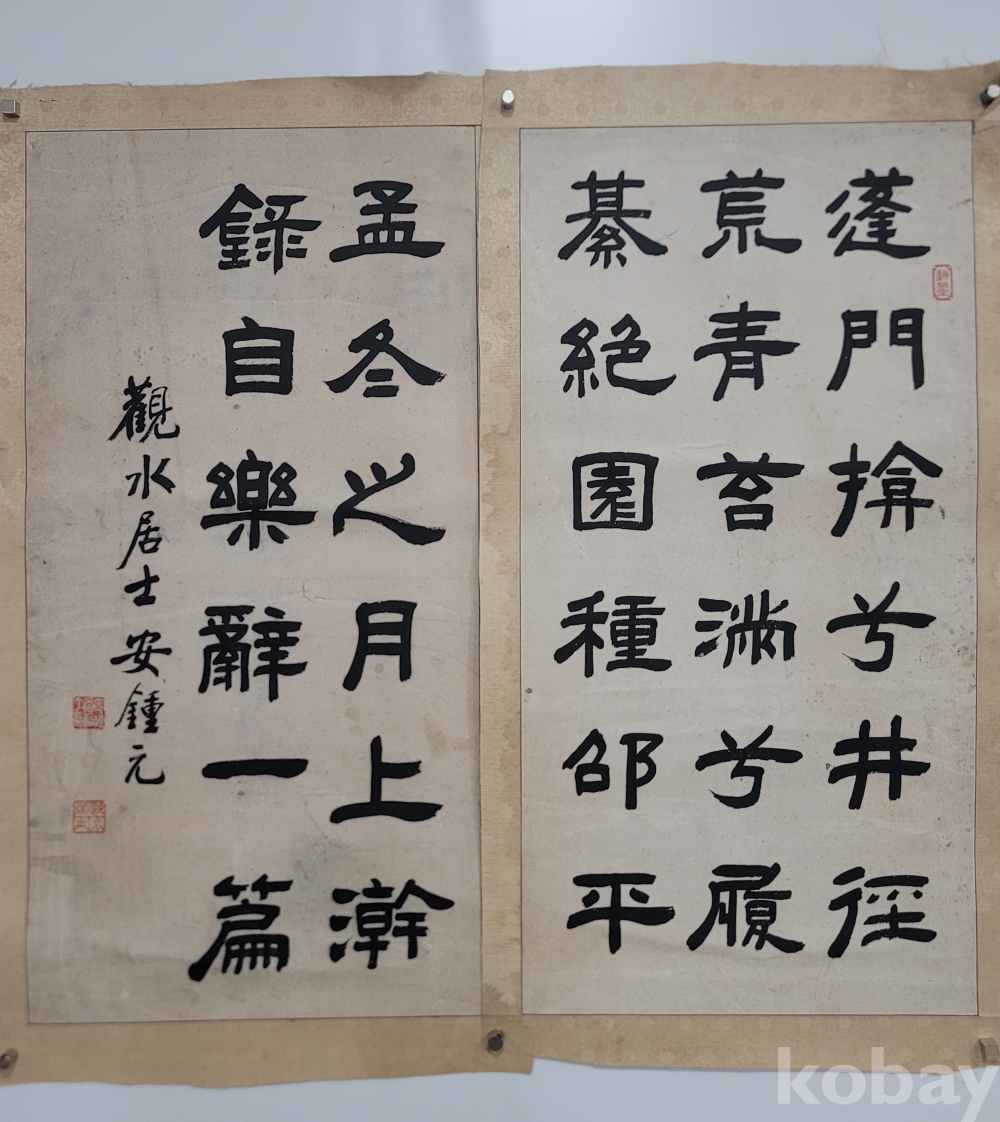 蓬門揜兮井徑
荒青苔滿兮履
綦絕園種邵平
孟冬之月上澣
錄自樂辭一篇
觀水居士安鍾元
kobay